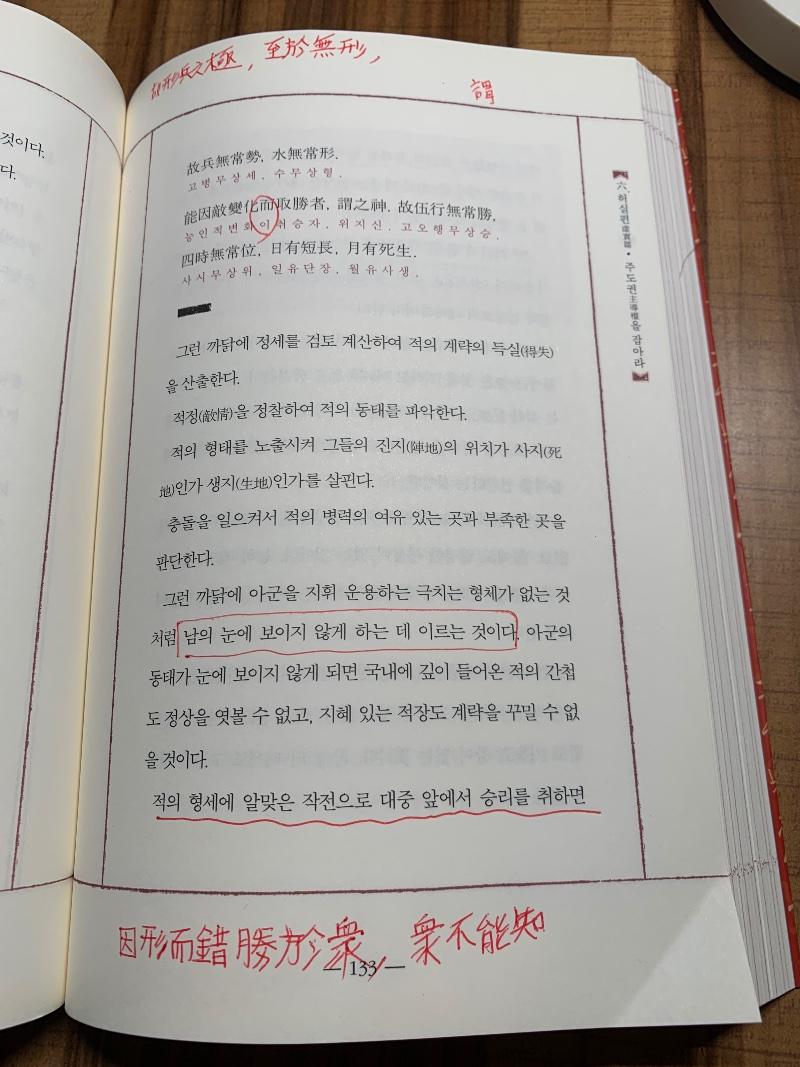 것이다.
다.
故形兵之極, 至於無形,
謂
故兵無常勢, 水無常形.
고병무상세. 수무상형.
能因敵變化而取勝者, 謂之神. 故伍行無常勝,
능인적변화이취승자. 위지신. 고오행무상승.
四時無常位, 日有短長, 月有死生.
사시무상위. 일유단장. 월유사생.
그런 까닭에 정세를 검토 계산하여 적의 계략의 득실(得失)
을 산출한다.
적정(敵情)을 정찰하여 적의 동태를 파악한다.
적의 형태를 노출시켜 그들의 진지(陣地)의 위치가 사지(死
地)인가 생지(生地)인가를 살핀다.
충돌을 일으켜서 적의 병력의 여유 있는 곳과 부족한 곳을
판단한다.
그런 까닭에 아군을 지휘 운용하는 극치는 형체가 없는 것
처럼 남의 눈에 보이지 않게 하는 데 이르는 것이다. 아군의
동태가 눈에 보이지 않게 되면 국내에 깊이 들어온 적의 간첩
도 정상을 엿볼 수 없고, 지혜 있는 적장도 계략을 꾸밀 수 없
을 것이다.
적의 형세에 알맞은 작전으로 대중 앞에서 승리를 취하면
因形而錯勝於衆, 衆不能知
— 133 —
六. 허실편虛實篇 · 주도권主導權을 잡아라